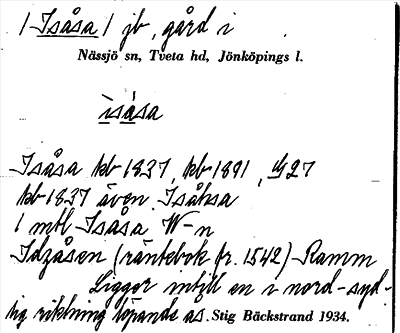 / Isåsa / jb, gård i
Nässjö sn, Tveta hd, Jönköpings l.
isåsa
Isåsa kb 1837, kb 1891, G27
kb 1837 även Isåhsa
1 mtl Isåsa W-n
Idzåsen (räntebok fr. 1542) Ramm
Ligger intill en i nord-syd-
lig riktning löpande ås. Stig Bäckstrand 1934.